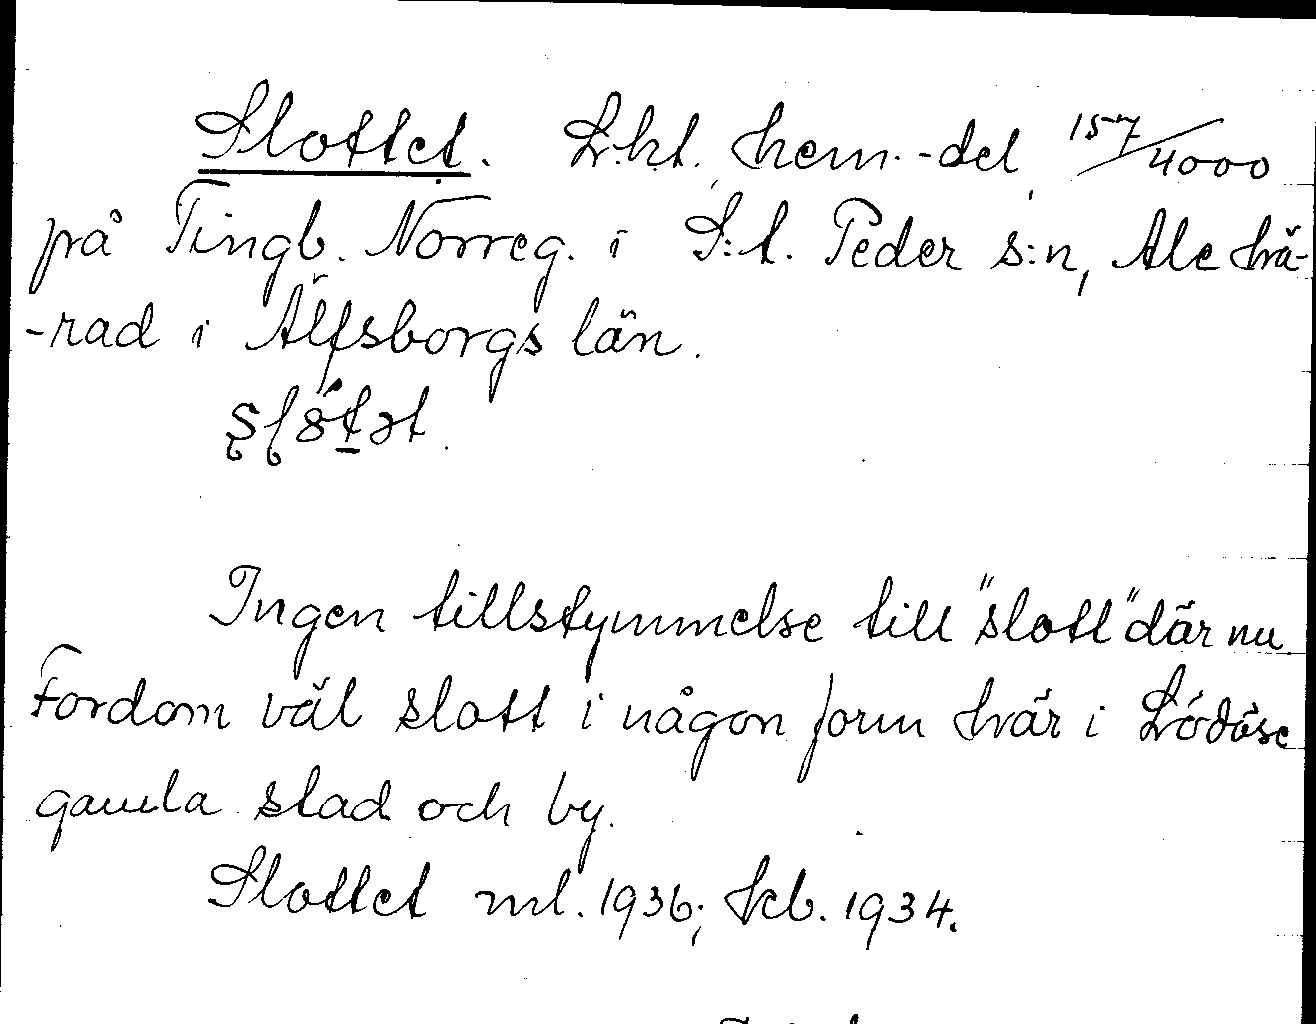 Slottet. L:ht, hem.-del, 157/4000
på Tingb. Norreg. i S:t. Peder s:n, Ale hä-
-rad i Älfsborgs län.
Ingen tillstymmelse till "slott" där nu.
Fordom väl slott i någon form här i Lödöse
gamla stad och by.
Slottet ml. 1936; kb. 1934.